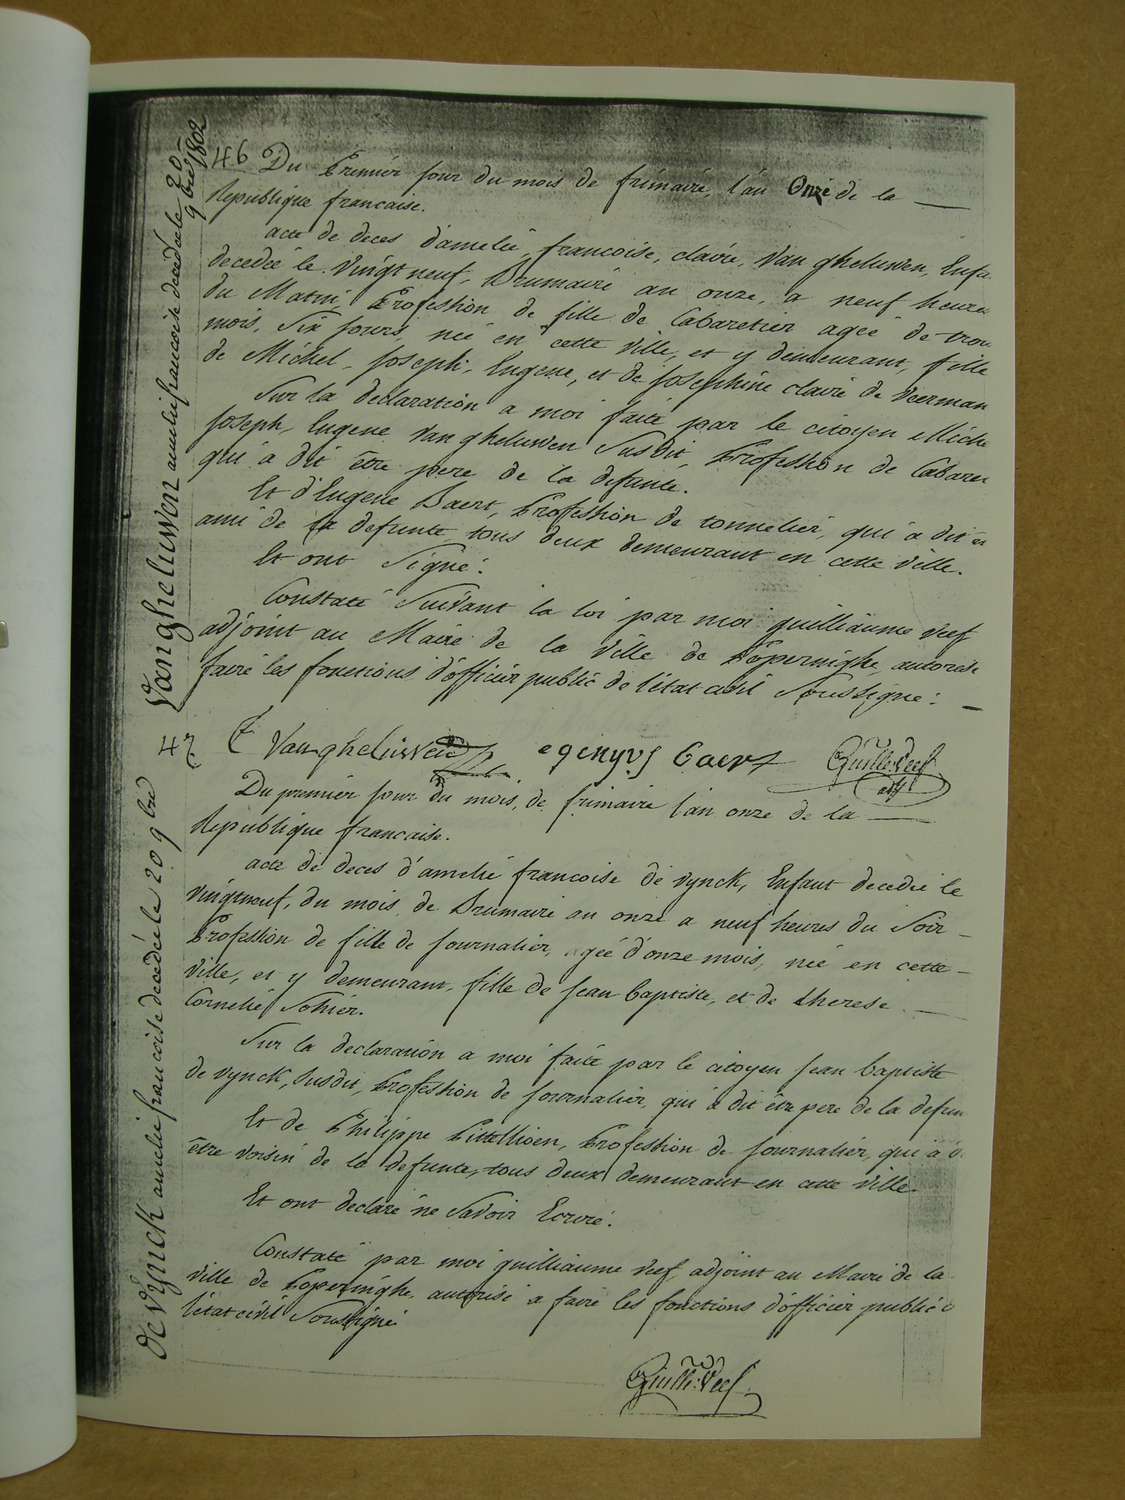 Vangheluwen amelie francoise decedé le 20 9bre 1802
46 Du Premiér jour du mois de frimairé, l'an Onze de la
Republique francaise.
acte de deces d'ameliè, francoise, clairé, Van gheluwen, Enfa
decedeé le Vingt neuf, Drumairé an onze, a neuf heures
du Matin, Profession de fille de Cabaretier agéé de trois
mois, Six jours née en cette ville, et y demeurant, fille
de Michel, Joseph, Eugene, et de Josephine claire de Veerman
Sur la declaration a moi faité par le citoyen Miche
Joseph, Eugene Van gheluwen Susdit, Profession de Cabaret
qui a dit être pere de la defunte.
Et d'Eugene Baert, Profession de tonneliér, qui a dit ê
ami de la defunte, tous deux demeurant en cette ville.
Et ont Signé.
Constaté Suivant la loi par moi guilliaume Veef
adjoint au Mairé de la Ville de Poperinghe, autorisé
fairé les fonctions d'officiér public de l'état civil Soussigné.
Vangheluwen egenyus Baert Guille: Veef
adj
de Vynck amelie francoise decedée le 20 9bre
47
Du premiér jour du mois, de frimaire l'an onze de la
Republique francaise.
acte de deces d'amelié francoise de vynck, Enfant decedeé le
Vingtneuf, du mois de Brumairé an onze a neuf heures du Soir
Profession de fille de Journaliér, agéé d'onze mois, née en cette
Ville, et y demeurant, fille de Jean baptiste, et de therese
Cornelié Sohiér.
Sur la declaration a moi faité par le citoyen Jean baptiste
de vynck, Susdit, Profession de Journaliér, qui a dit être pere de la defun
Et de Philippe Pittellioen, Profession de Journaliér, qui a d
être Voisin de la defunte, tous deux demeurant en cette Ville.
Et ont declaré ne Savoir Ecriré.
Constaté par moi guilliaume Veef, adjoint au Mairé de la
Ville de Poperinghe, autorisé a faire les fonctions d'officiér public d
l'état civil Soussigné
Guille: Veef